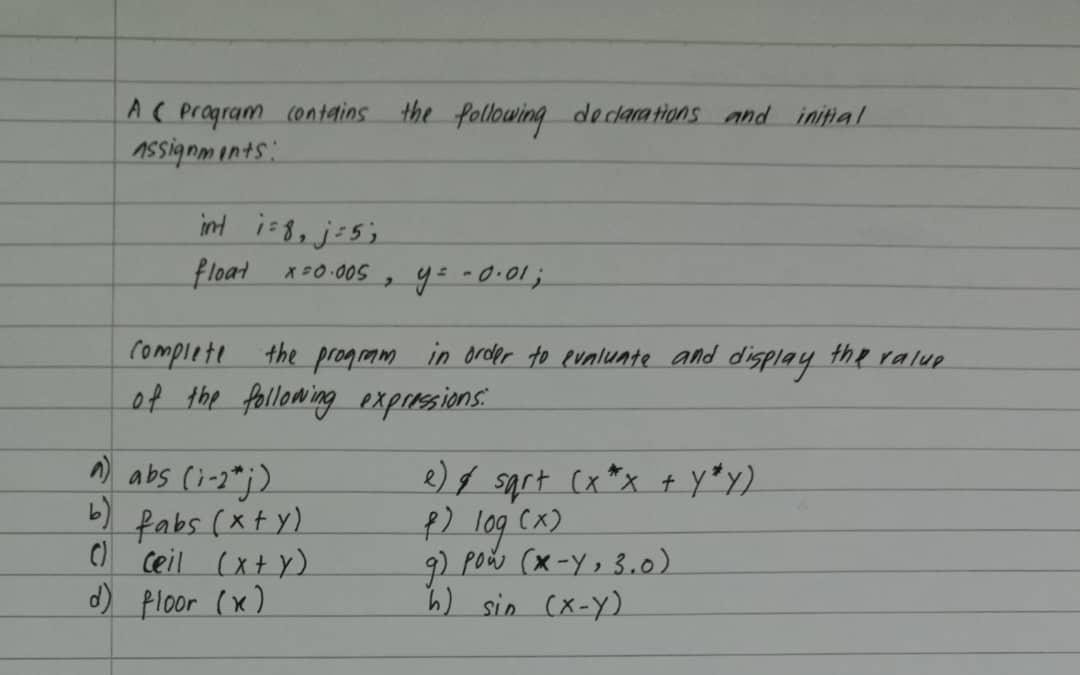 A C program contains the following declarations and initial
assignments:
int i=8, j=5;
float x=0.005, y= -0.01;
Complete the program in order to evaluate and display the value
of the following expressions:
a) abs (i-2*j)
b) fabs (x+y)
c) ceil (x+y)
d) floor (x)
e) sqrt (x*x + y*y)
f) log (x)
g) pow (x-y, 3.0)
h) sin (x-y)